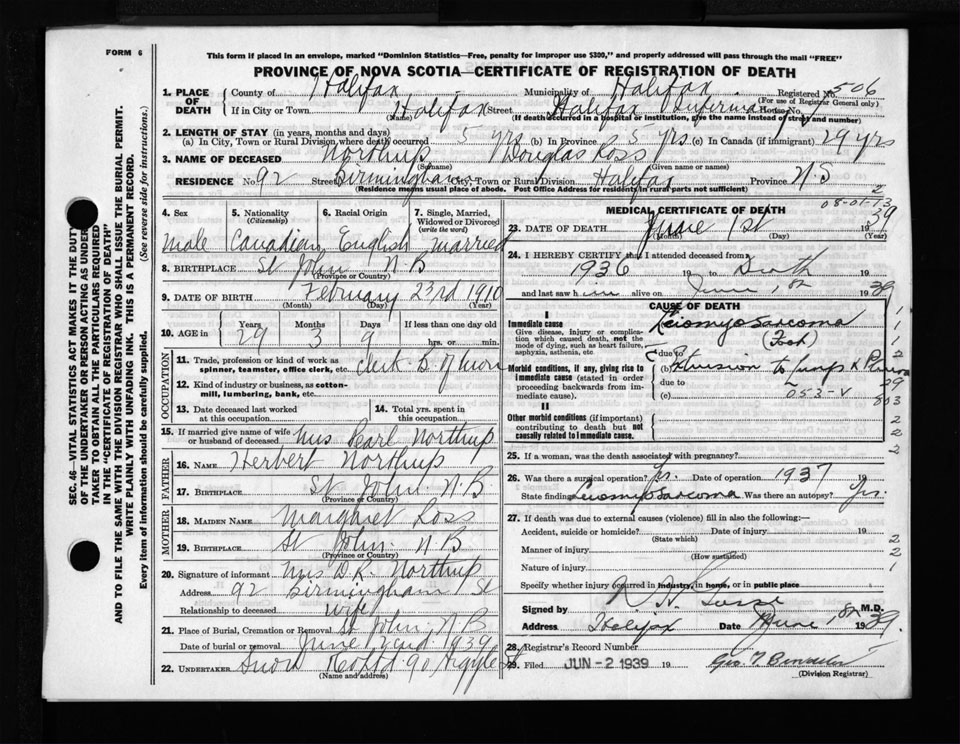 FORM 6
This form if placed in an envelope, marked "Dominion Statistics—Free, penalty for improper use $300," and properly addressed will pass through the mail "FREE"
PROVINCE OF NOVA SCOTIA—CERTIFICATE OF REGISTRATION OF DEATH
1. PLACE OF DEATH County of Halifax Municipality of Halifax Registered No. 506
(For use of Registrar General only)
If in City or Town Halifax (Name) Street Halifax Infirmary House No.
(If death occurred in a hospital or institution, give the name instead of street and number)
2. LENGTH OF STAY (in years, months and days)
(a) In City, Town or Rural Division where death occurred 5 yrs (b) In Province 5 yrs. (c) In Canada (if immigrant) 29 yrs
3. NAME OF DECEASED Northrup Douglas Ross
(Surname) (Given name or names)
RESIDENCE No 92 Street Birmingham City, Town or Rural Division Halifax Province N.S
(Residence means usual place of abode. Post Office Address for residents in rural parts not sufficient)
2
08-01-13
4. Sex male
5. Nationality (Citizenship) Canadian
6. Racial Origin English
7. Single, Married, Widowed or Divorced (write the word) married
8. BIRTHPLACE St John N B
(Province or Country)
9. DATE OF BIRTH February 23rd 1910
(Month) (Day) (Year)
10. AGE in Years 29 Months 3 Days 9 If less than one day
hrs. or min.
OCCUPATION
11. Trade, profession or kind of work as spinner, teamster, office clerk, etc. Clerk B. of
12. Kind of industry or business, as cotton-mill, lumbering, bank, etc.
13. Date deceased last worked at this occupation
14. Total yrs. spent in this occupation
15. If married give name of wife or husband of deceased Mrs Pearl Northrup
FATHER
16. NAME Herbert Northrup
17. BIRTHPLACE St John N.B.
(Province or Country)
MOTHER
18. MAIDEN NAME Margaret Ross
19. BIRTHPLACE St John N B
(Province or Country)
20. Signature of informant Mrs D.R. Northrup
Address 92 Birmingham St
Relationship to deceased wife
21. Place of Burial, Cremation or Removal St John N B
Date of burial or removal June 2nd 1939
22. UNDERTAKER Snow 90 Argyle St
(Name and address)
MEDICAL CERTIFICATE OF DEATH
23. DATE OF DEATH June 1st 1939
(Month) (Day) (Year)
24. I HEREBY CERTIFY that I attended deceased from
1936 19 to Death 19
and last saw him alive on June 1st 1939
CAUSE OF DEATH
I
Immediate cause
Give disease, injury or complication which caused death, not the mode of dying, such as heart failure, asphyxia, asthenia, etc
Leiomyosarcoma
(Foot)
due to
Morbid conditions, if any, giving rise to immediate cause (stated in order proceeding backwards from immediate cause).
(b) Extension to lungs &
due to
(c)
053-V
II
Other morbid conditions (if important) contributing to death but not causally related to immediate cause.
25. If a woman, was the death associated with pregnancy?
26. Was there a surgical operation? Yes. Date of operation 1937
State finding Leiomyosarcoma Was there an autopsy? Yes.
27. If death was due to external causes (violence) fill in also the following:—
Accident, suicide or homicide? Date of injury 19
(State which)
Manner of injury
(How sustained)
Nature of injury
Specify whether injury occurred in industry, in home, or in public place
Signed by M.D.
Address Halifax Date June 1st 1939.
28. Registrar's Record Number
29. Filed JUN -2 1939 19
(Division Registrar)
SEC. 46—VITAL STATISTICS ACT MAKES IT THE DUTY
OF THE UNDERTAKER OR PERSON ACTING AS UNDER-
TAKER TO OBTAIN ALL THE PARTICULARS REQUIRED
IN THE "CERTIFICATE OF REGISTRATION OF DEATH"
AND TO FILE THE SAME WITH THE DIVISION REGISTRAR WHO SHALL ISSUE THE BURIAL PERMIT.
WRITE PLAINLY WITH UNFADING INK. THIS IS A PERMANENT RECORD.
Every item of information should be carefully supplied. (See reverse side for instructions.)